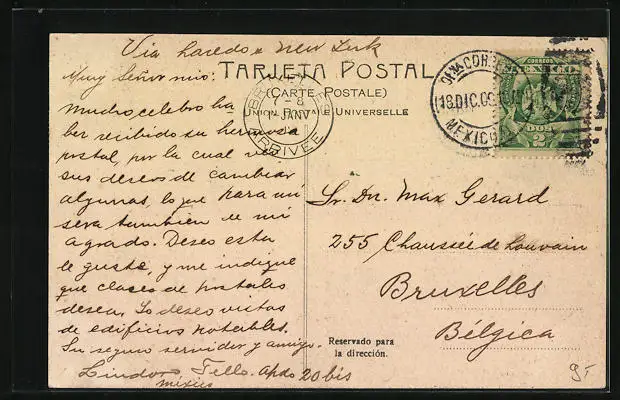 Via Laredo e New York
Muy Señor mio:
Mucho celebro ha
ber recibido su hermosa
postal, por la cual veo
sus deseos de cambiar
algunas, lo que para mi
sera tambien de mi
agrado. Deseo esta
le guste, y me indique
que clases de postales
desea. Yo deseo vistas
de edificios notables.
Su seguro servidor y amigo.
Lindoro Tello. Apdo 20 bis
México
TARJETA POSTAL
(CARTE POSTALE)
UNION POSTALE UNIVERSELLE
BRUXELLES
8
JANV
ARRIVEE
CORREOS
18 DIC. 09
MEXICO
CORREOS
MEXICO
DOS
2
Sr. Dn. Max Gerard
255 Chaussée de Louvain
Bruxelles
Bélgica
Reservado para
la dirección.